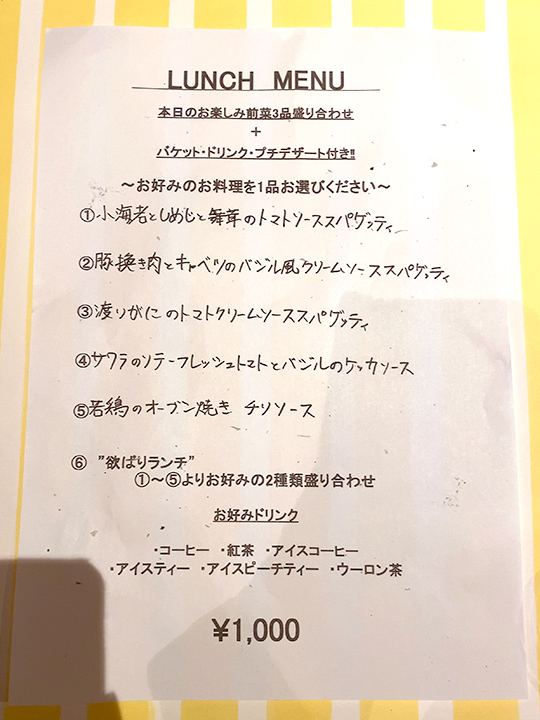 LUNCH MENU
本日のお楽しみ前菜3品盛り合わせ
+
バケット・ドリンク・プチデザート付き!!
～お好みのお料理を1品お選びください～
①小海老としめじと舞茸のトマトソーススパゲッティ
②豚挽き肉とキャベツのバジル風クリームソーススパゲッティ
③渡りがにのトマトクリームソーススパゲッティ
④サワラのソテーフレッシュトマトとバジルのケッカソース
⑤若鶏のオーブン焼き チリソース
⑥ ”欲ばりランチ”
①～⑤よりお好みの2種類盛り合わせ
お好みドリンク
・コーヒー ・紅茶 ・アイスコーヒー
・アイスティー ・アイスピーチティー ・ウーロン茶
¥1,000